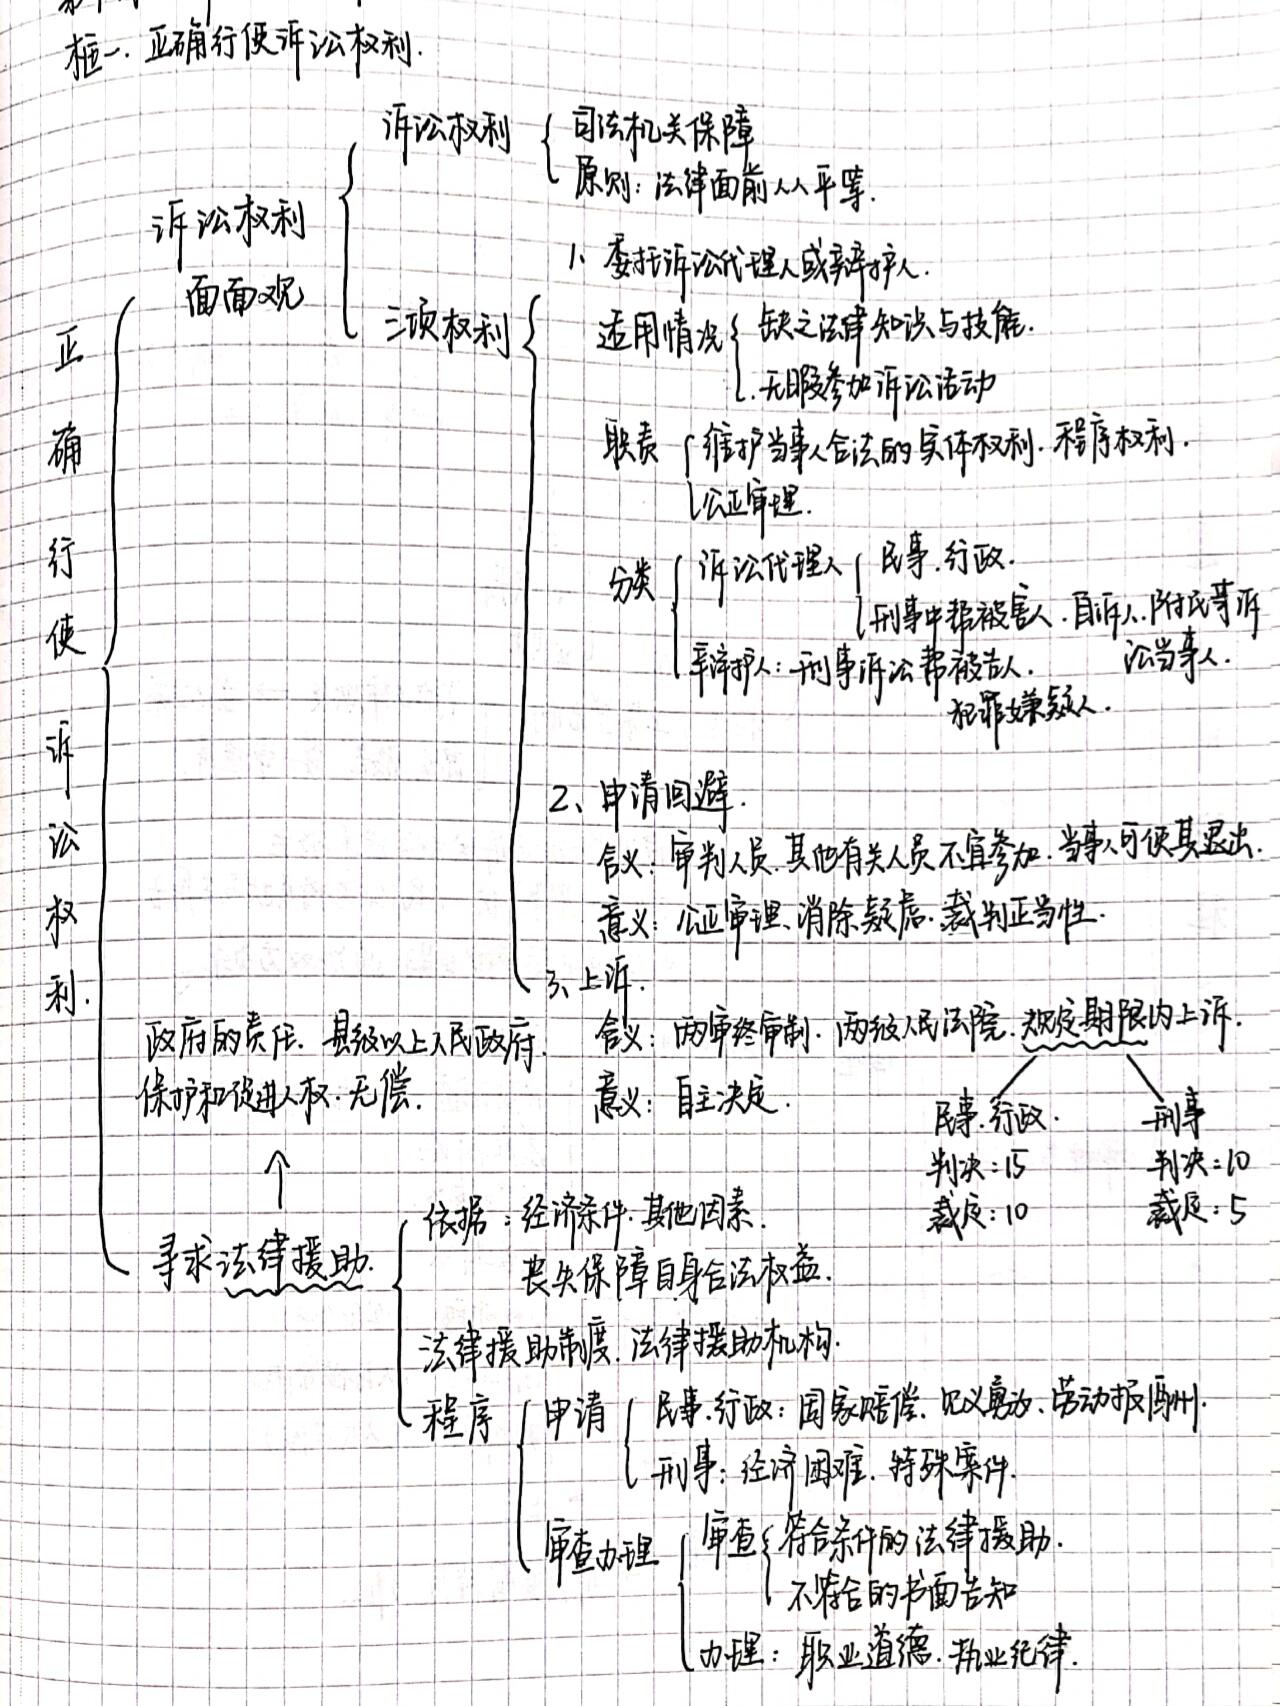 框一.正确行使诉讼权利.
正确行使诉讼权利.
诉讼权利
面面观
诉讼权利
司法机关保障
原则:法律面前人人平等.
三项权利
1、委托诉讼代理人或辩护人.
适用情况
缺乏法律知识与技能.
无暇参加诉讼活动
职责
维护当事人合法的实体权利.程序权利.
公正审理.
分类
诉讼代理人
民事.行政.
刑事中帮被害人.自诉人.附民等诉
讼当事人.
辩护人:刑事诉讼帮被告人.
犯罪嫌疑人.
2、申请回避.
含义:审判人员.其他有关人员不宜参加.当事人可使其退出.
意义:公正审理、消除疑虑.裁判正当性.
3、上诉.
含义:两审终审制.两级人民法院.规定期限内上诉.
意义:自主决定.
民事.行政.
判决:15
裁定:10
刑事
判决:10
裁定:5
政府的责任.县级以上人民政府.
保护和促进人权.无偿.
寻求法律援助.
依据:经济条件.其他因素.
丧失保障自身合法权益.
法律援助制度.法律援助机构.
程序
申请
民事.行政:国家赔偿、见义勇为、劳动报酬.
刑事:经济困难.特殊案件.
审查办理
审查
符合条件的法律援助.
不符合的书面告知
办理:职业道德.执业纪律.